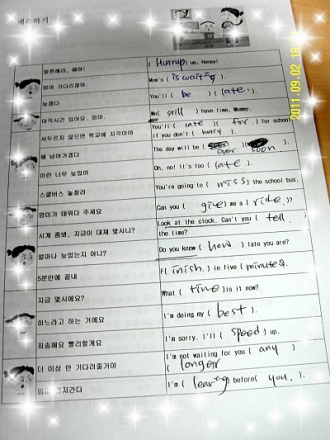 하기
2011.09.02 18
( Hurry up, Honey!
엄마 기다리잖아.
Mom's ( is waiting ).
늦겠다
You'll ( be ) ( late ).
아직시간 있어요. 엄마.
We( still ) have time, Mommy.
서두르지 않으면 학교에 지각이야
You'll ( late )( for ) for school
if you don't ( hurry ).
해 넘어가겠다
The day will be ( over soon
이런 너무 늦었어
Oh, no! It's too ( late ).
스쿨버스 놓칠라
You're going to ( miss ) the school bus.
엄마가 태워다 주세요
Can you ( give ) me a ( ride. )?
시계 좀봐. 지금이 대체 몇시니?
Look at the clock. Can't you ( tell. )
the time?
얼마나 늦었는지 아니?
Do you know ( how ) late you are?
5분만에 끝내
Fi( inish. ) in five ( minutes.
지금 몇시에요?
What ( time )is it now?
하느라고 하는 거에요
I'm doing my ( best ).
죄송해요 빨리할게요
I'm sorry. I'll ( speed ) up.
더 이상 안 기다려줄거야
I'm not waiting for you ( any )
( longer
I'm ( leaving before( you. ).